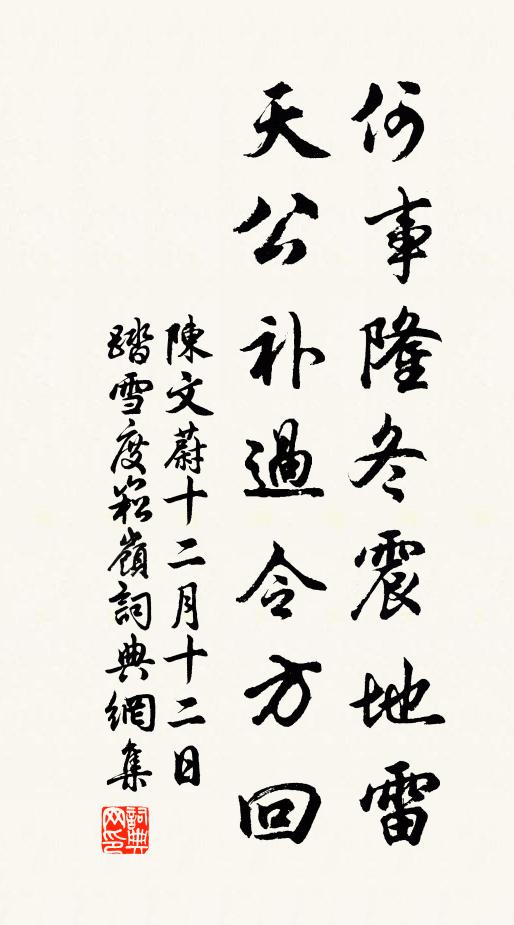 何事隆冬震地雷
天公补過令方回
陳文蔚十二月十二日
踏雪度崧嶺詞典網集
詞典
网印